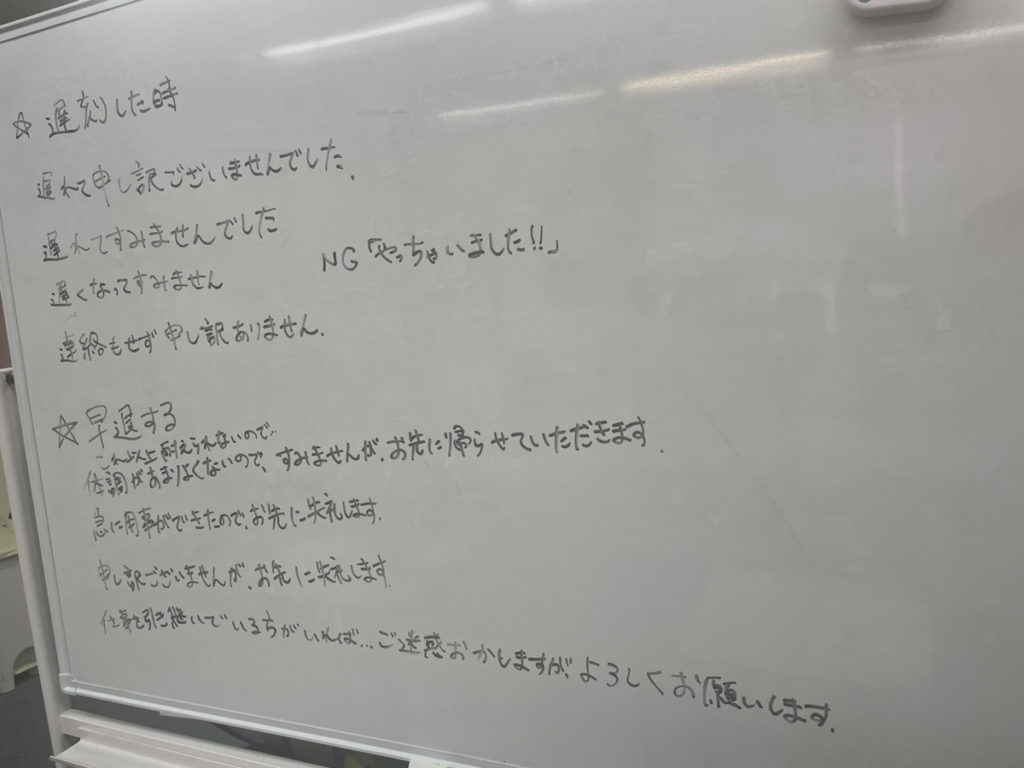 ☆ 遅刻した時
遅れて申し訳ございませんでした.
遅れてすみませんでした
NG「やっちゃいました!!」
遅くなってすみません
連絡もせず申し訳ありません.
☆ 早退する
これ以上耐えられないので..
体調があまりよくないので、すみませんが、お先に帰らせていただきます.
急に用事ができたので、お先に失礼します.
申し訳ございませんが、お先に失礼します.
仕事を引き継いでいる方がいれば…ご迷惑おかしますが、よろしくお願いします.